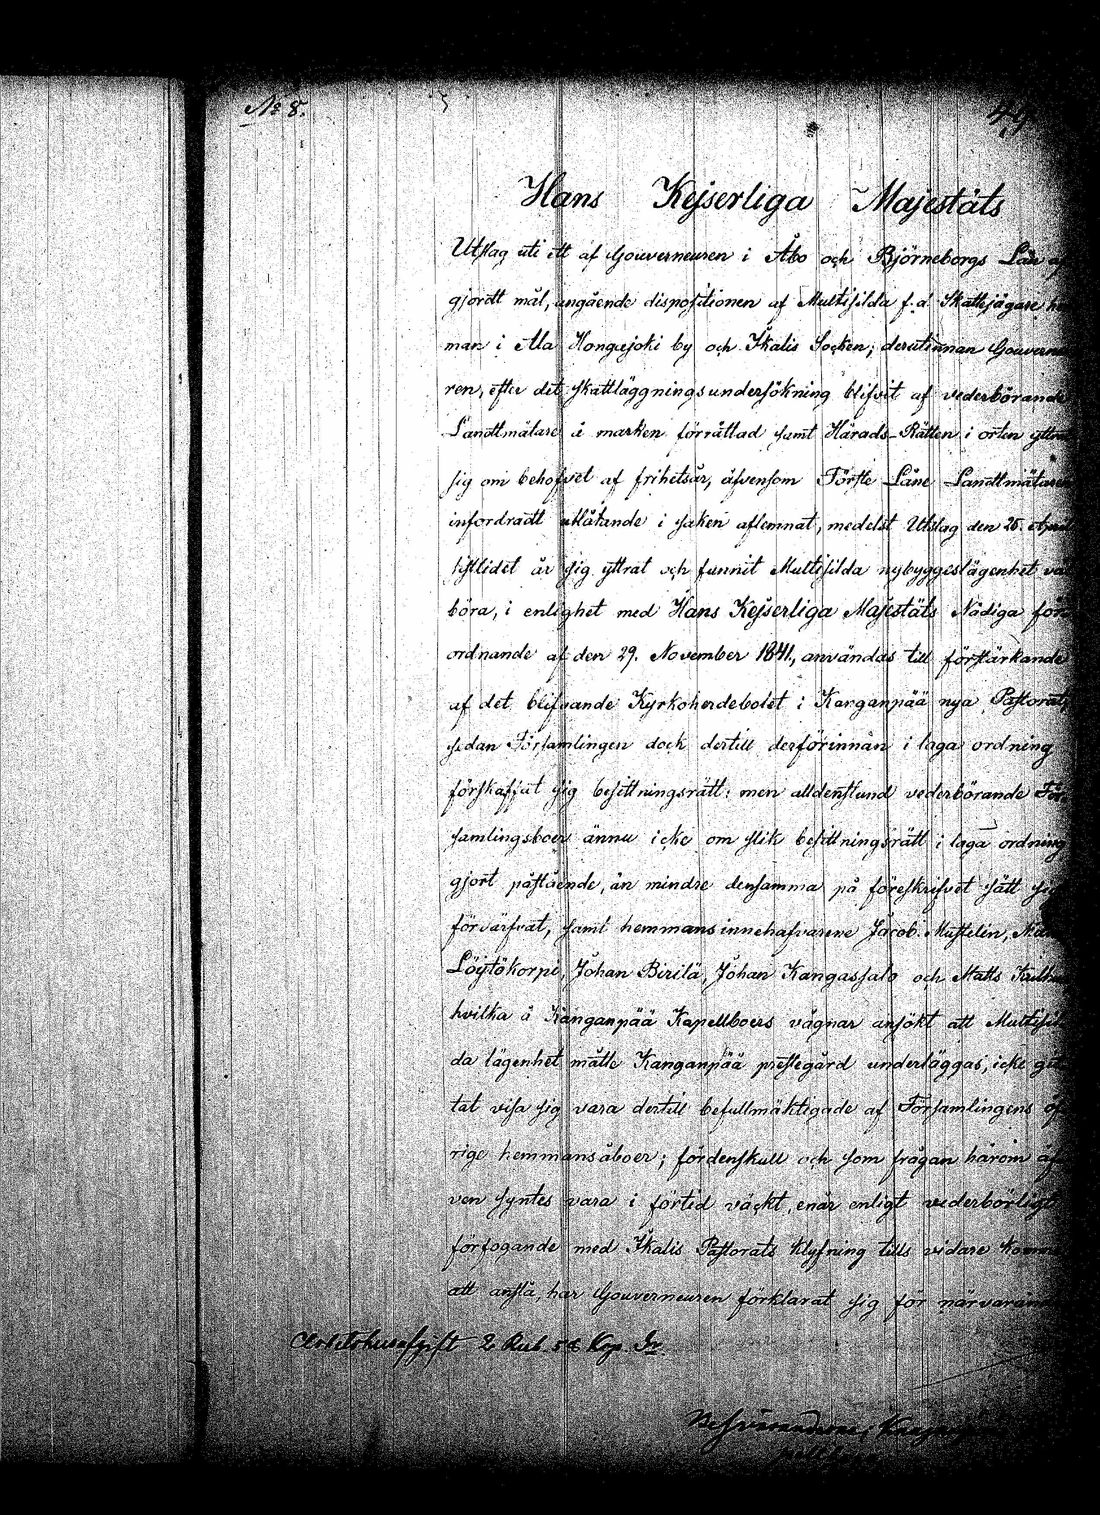 No 8.
49.
Hans Kejserliga Majestäts
Utslag uti ett af Gouverneuren i Åbo och Björneborgs Län af
gjordt mål, angående dispositionen af Multisilda f. d. Skattejägare hem
man i Ala Hongœjoki by och Ikalis Socken; derutinnan Gouverneu
ren, efter det skattläggningsundersökning blifvit af vederbörande
Landtmätare å marken förrättad samt Härads-Rätten i orten yttrat
sig om behofvet af frihetsår, äfvensom Förste Läne Landtmätaren
infordradt utlåtande i saken aflemnat, medelst Utslag den 26 April
sistlidet år sig yttrat och funnit Multisilda nybyggeslägenhet va
böra, i enlighet med Hans Kejserliga Majestäts Nådiga för
ordnande af den 29. November 1841, användas till förstärkande
af det blifvande Kyrkoherdebolet i Kanganpää nya Pastorat,
sedan Församlingen dock dertill derförinnan i laga ordning
förskaffat sig besittningsrätt; men alldenstund vederbörande För
samlingsboer ännu icke om slik besittningsrätt i laga ordning
gjort påstående, än mindre densamma på föreskrifvet sätt sig
förvärfvat, samt hemmansinnehafvarene Jacob Mustelin,
Löytökorpi, Johan Birilä, Johan Kangassalo och Matts
hvilka å Kanganpää Kapellboers vägnar ansökt att Multisil
da lägenhet måtte Kanganpää prestegård underläggas, icke git
tat visa sig vara dertill befullmäktigade af Församlingens öf
rige hemmansåboer; fördenskull och som frågan härom äf
ven syntes vara i förtid väckt, enär enligt vederbörligt
förfogande med Ikalis Pastorats klyfning tills vidare komme
att anstå, har Gouverneuren förklarat sig för närvarande
Arbetshusafgift 2 Rub. 58 Kop. Sr.
Besvärandene,